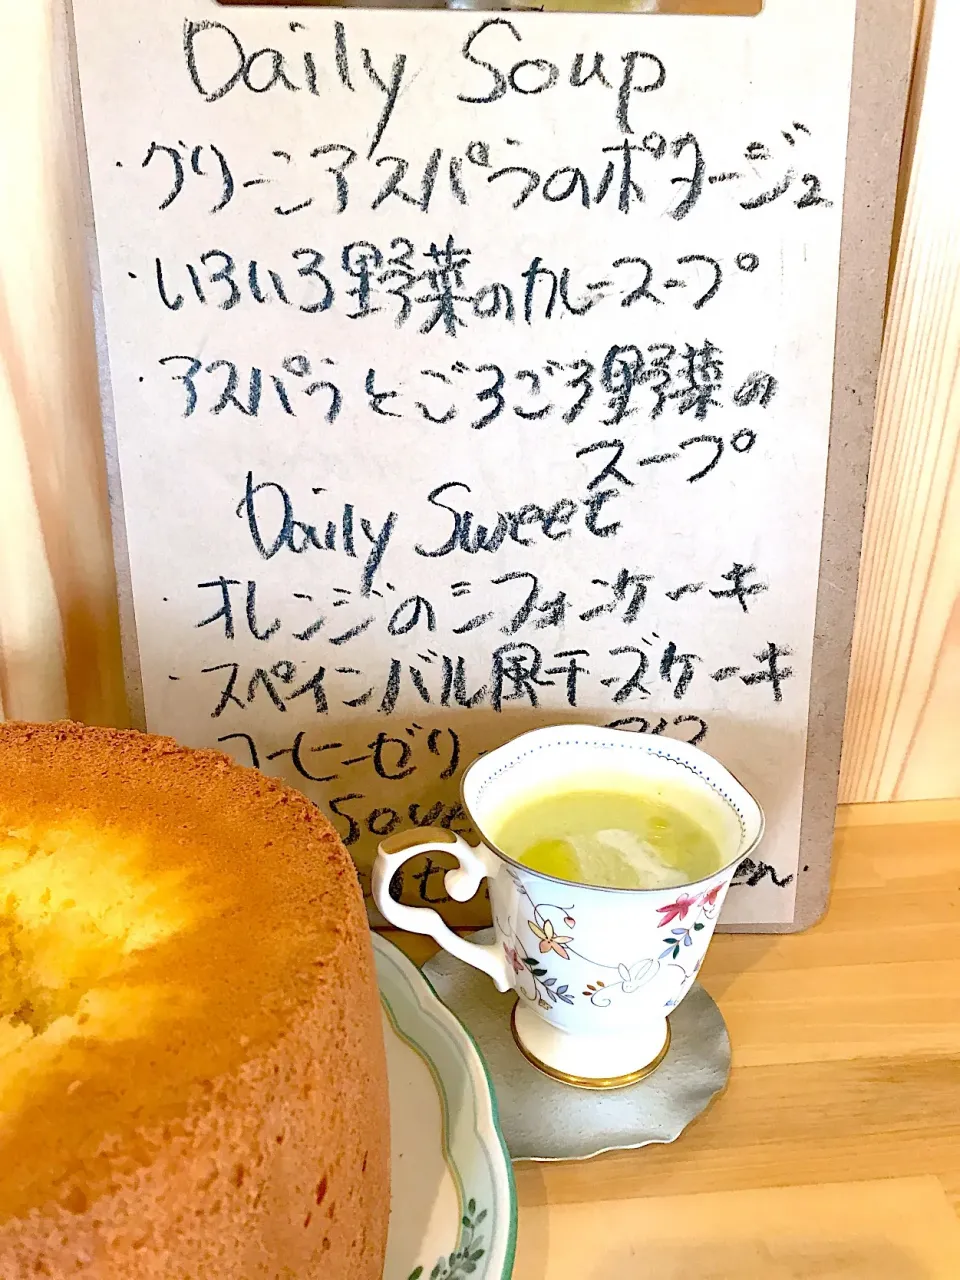 Daily Soup
・グリーンアスパラのポタージュ
・いろいろ野菜のカレースープ
・アスパラとごろごろ野菜の
スープ
Daily Sweet
・オレンジのシフォンケーキ
・スペインバル風チーズケーキ
コーヒーゼリー